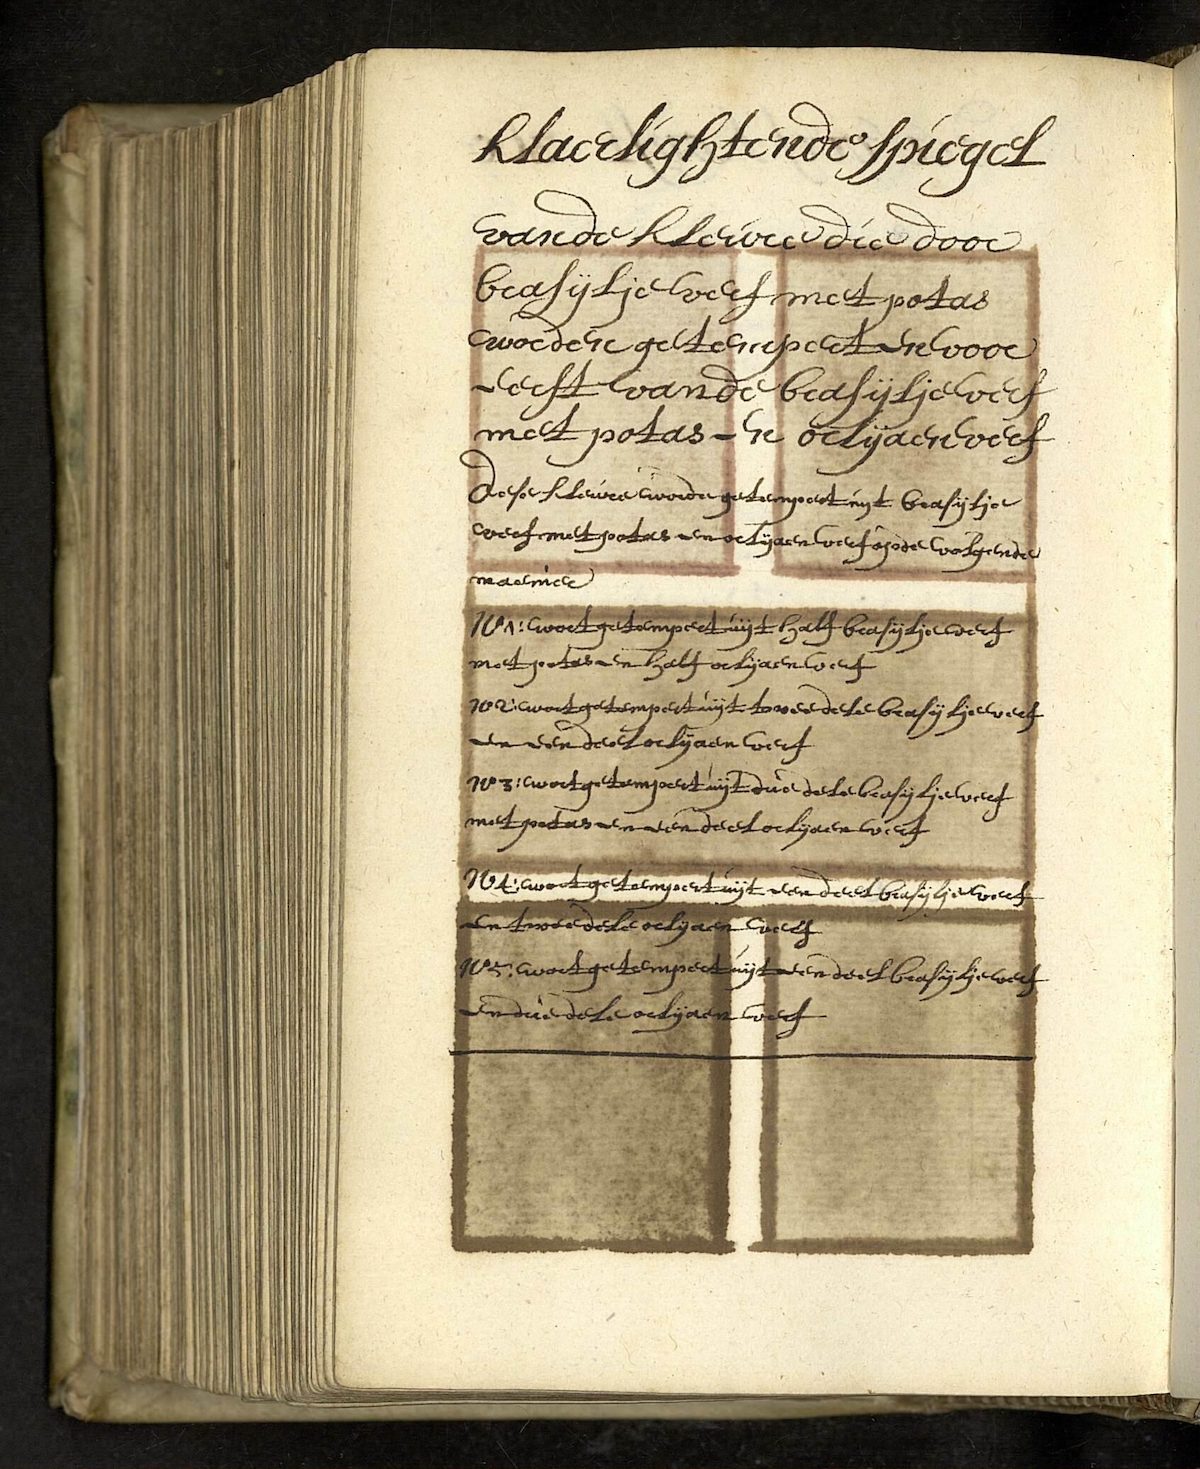 Klaerlightende spiegel
vande kleüre die door
brasÿlje verf met potas
worden getempert en voor
eerst vande brasÿlje verf
met potas en orlÿaen verf
dese kleüre worde getempert üÿt brasÿlje
verf met potas en orlÿaen verf op de volgende
maenier
No 1: wort getempert üÿt half brasÿlje verf
met potas en half orlÿaen verf
No 2: wort getempert üÿt twee dele brasÿlje verf
en een deel orlÿaen verf
No 3: wort getempert üÿt drie dele brasÿlje verf
met potas en een deel orlÿaen verf
No 4: wort getempert üÿt een deel brasÿlje verf
en twee dele orlÿaen verf
No 5: wort getempert üÿt een deel brasÿlje verf
en drie dele orlÿaen verf